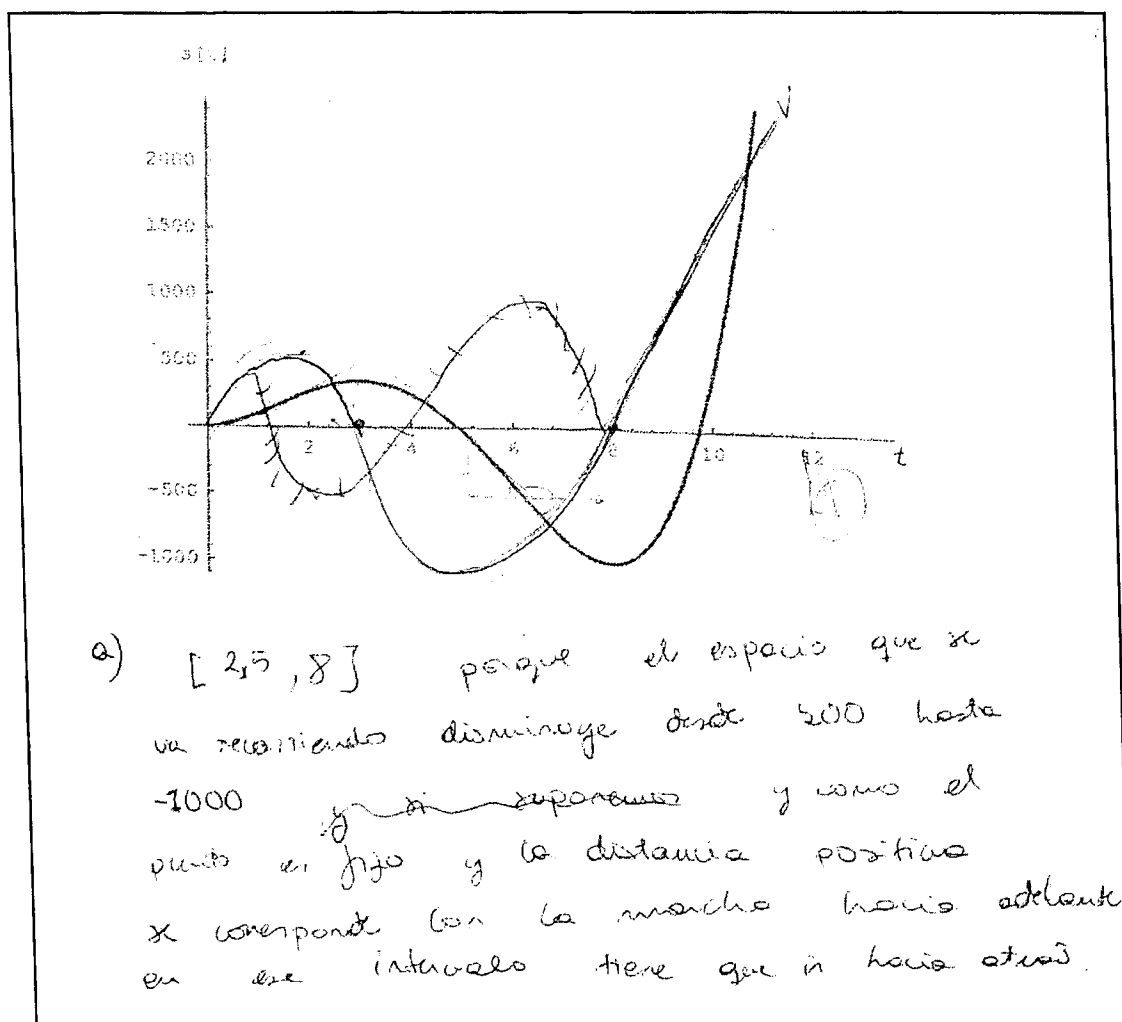 s[t]
V
2000
1500
1000
500
-500
-1000
2 4 6 8 10 12 t
a) [2,5 , 8] porque el espacio que se
va recorriendo disminuye desde 500 hasta
-1000 y si suponemos y como el
punto es fijo y la distancia positiva
se corresponde con la marcha hacia adelante
en ese intervalo tiene que ir hacia atras.